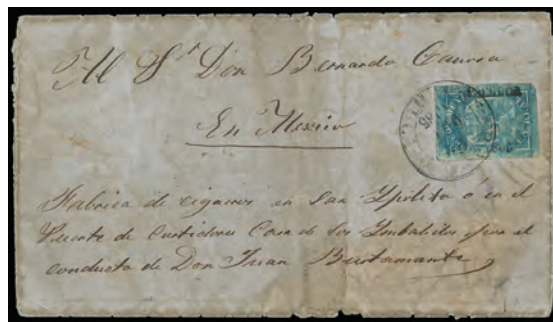 Al Sr Don Bernardo
En Mexico
Fabrica de cigarros en San Ypolito o en el
Puente de Curtidores Casa de los Imbalides por el
conducto de Don Juan Bustamante